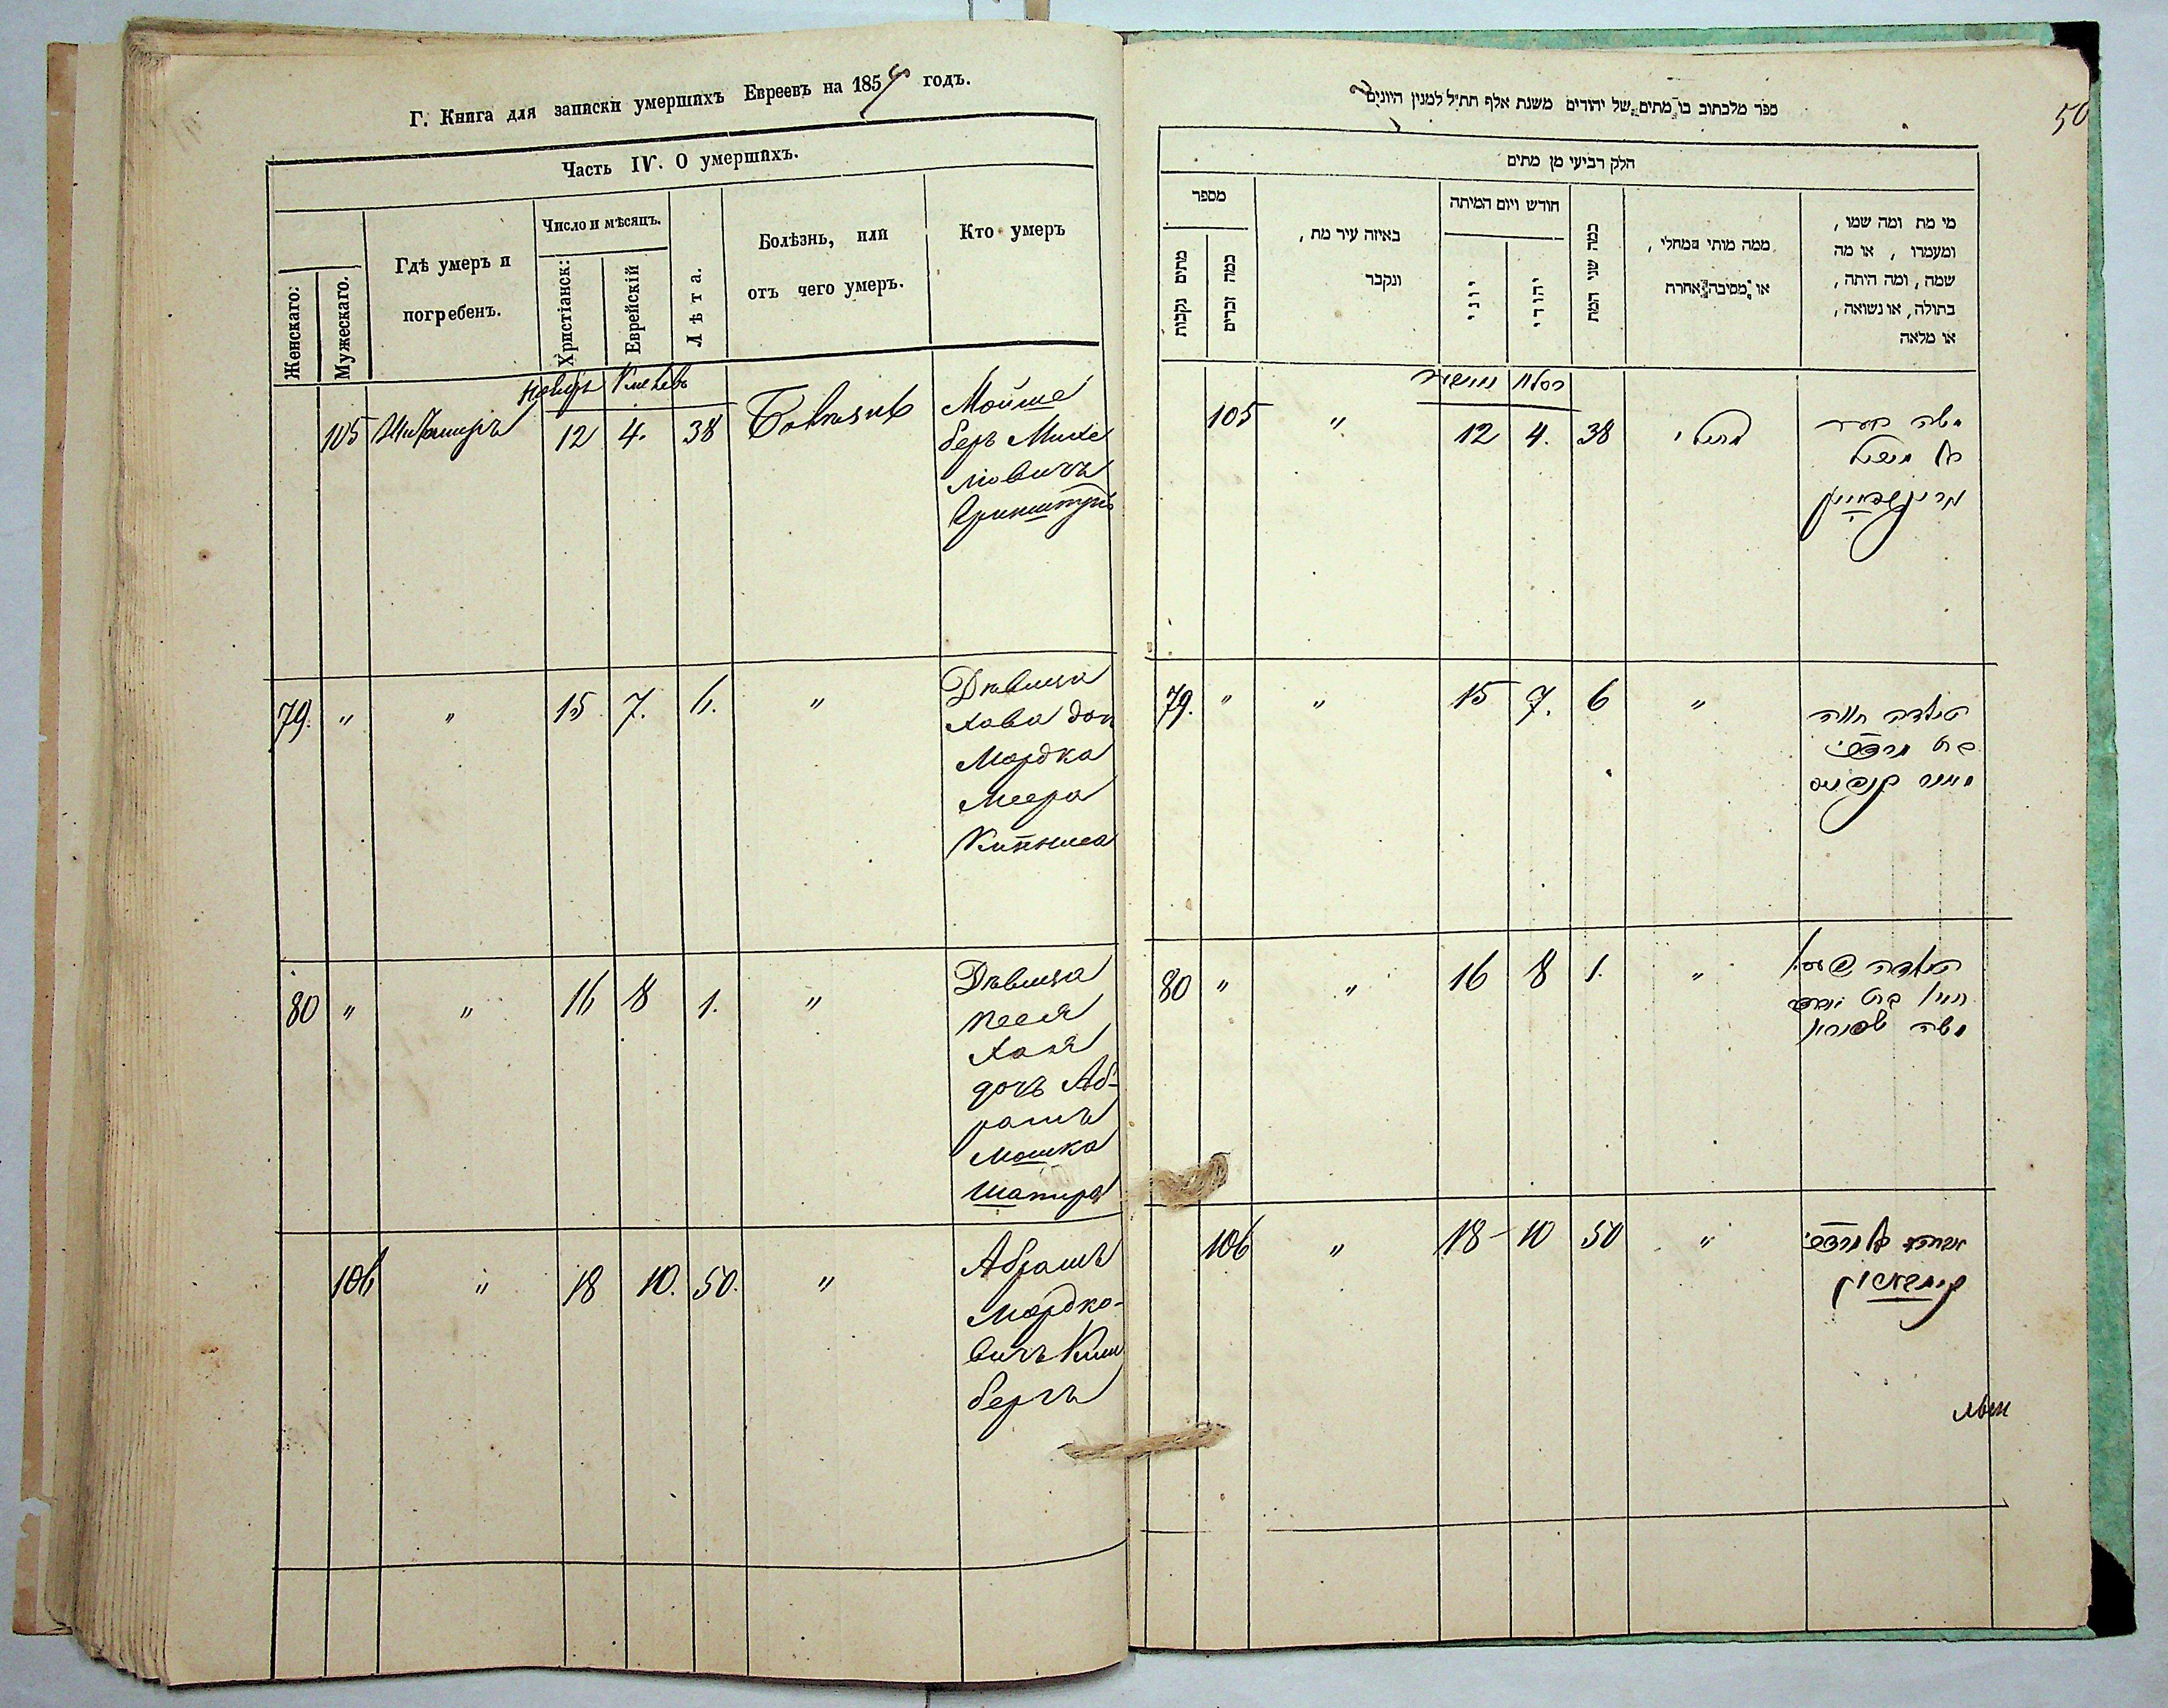 Г. Книга для записки умершихъ Евреевъ на 1859 годъ.
Часть IV. О умершихъ.
Женскаго:
Мужескаго.
Гдѣ умеръ и
погребенъ.
Число и мѣсяцъ.
Христіанск:
Еврейскій
Лѣта.
Болѣзнь, или
отъ чего умеръ.
Кто умеръ
105 Житомиръ 12 4. 38
Мойше
беръ Михе
лювичъ
79. " " 15 7. 6. "
Дѣвица
Хава доч
Мордка
Меера
Кипниса
80 " " 16 8 1. "
Дѣвица
Песя
Хая
дочь Аб-
рамъ
Мошка
Шапира
106 " 18 10. 50. "
Абрамъ
Мордко-
вичъ Ким
бергъ
50
ספר מלכתוב בו מתים של יהודים משנת אלף תת״ל למנין היונים
חלק רביעי מן מתים
מספר
מתים נקבות
כמה זכרים
באיזה עיר מת,
ונקבר
חודש ויום המיתה
יוני
יהודי
כמה שני המת
ממה מותי במחלי,
או מסיבה אחרת
מי מת ומה שמו,
ומעמרו, או מה
שמה, ומה היתה,
בתולה, או נשואה,
או מלאה
כסלו
105 " 12 4. 38
משה בער
79. " " 15 7. 6 "
הילדה חוה
ברט מרדכי
מאיר קיפניס
80 " " 16 8 1. "
הילדה פעסי
חיה ברט
משה שפירא
106 " 18 10 50 "
אברהם בן מרדכי